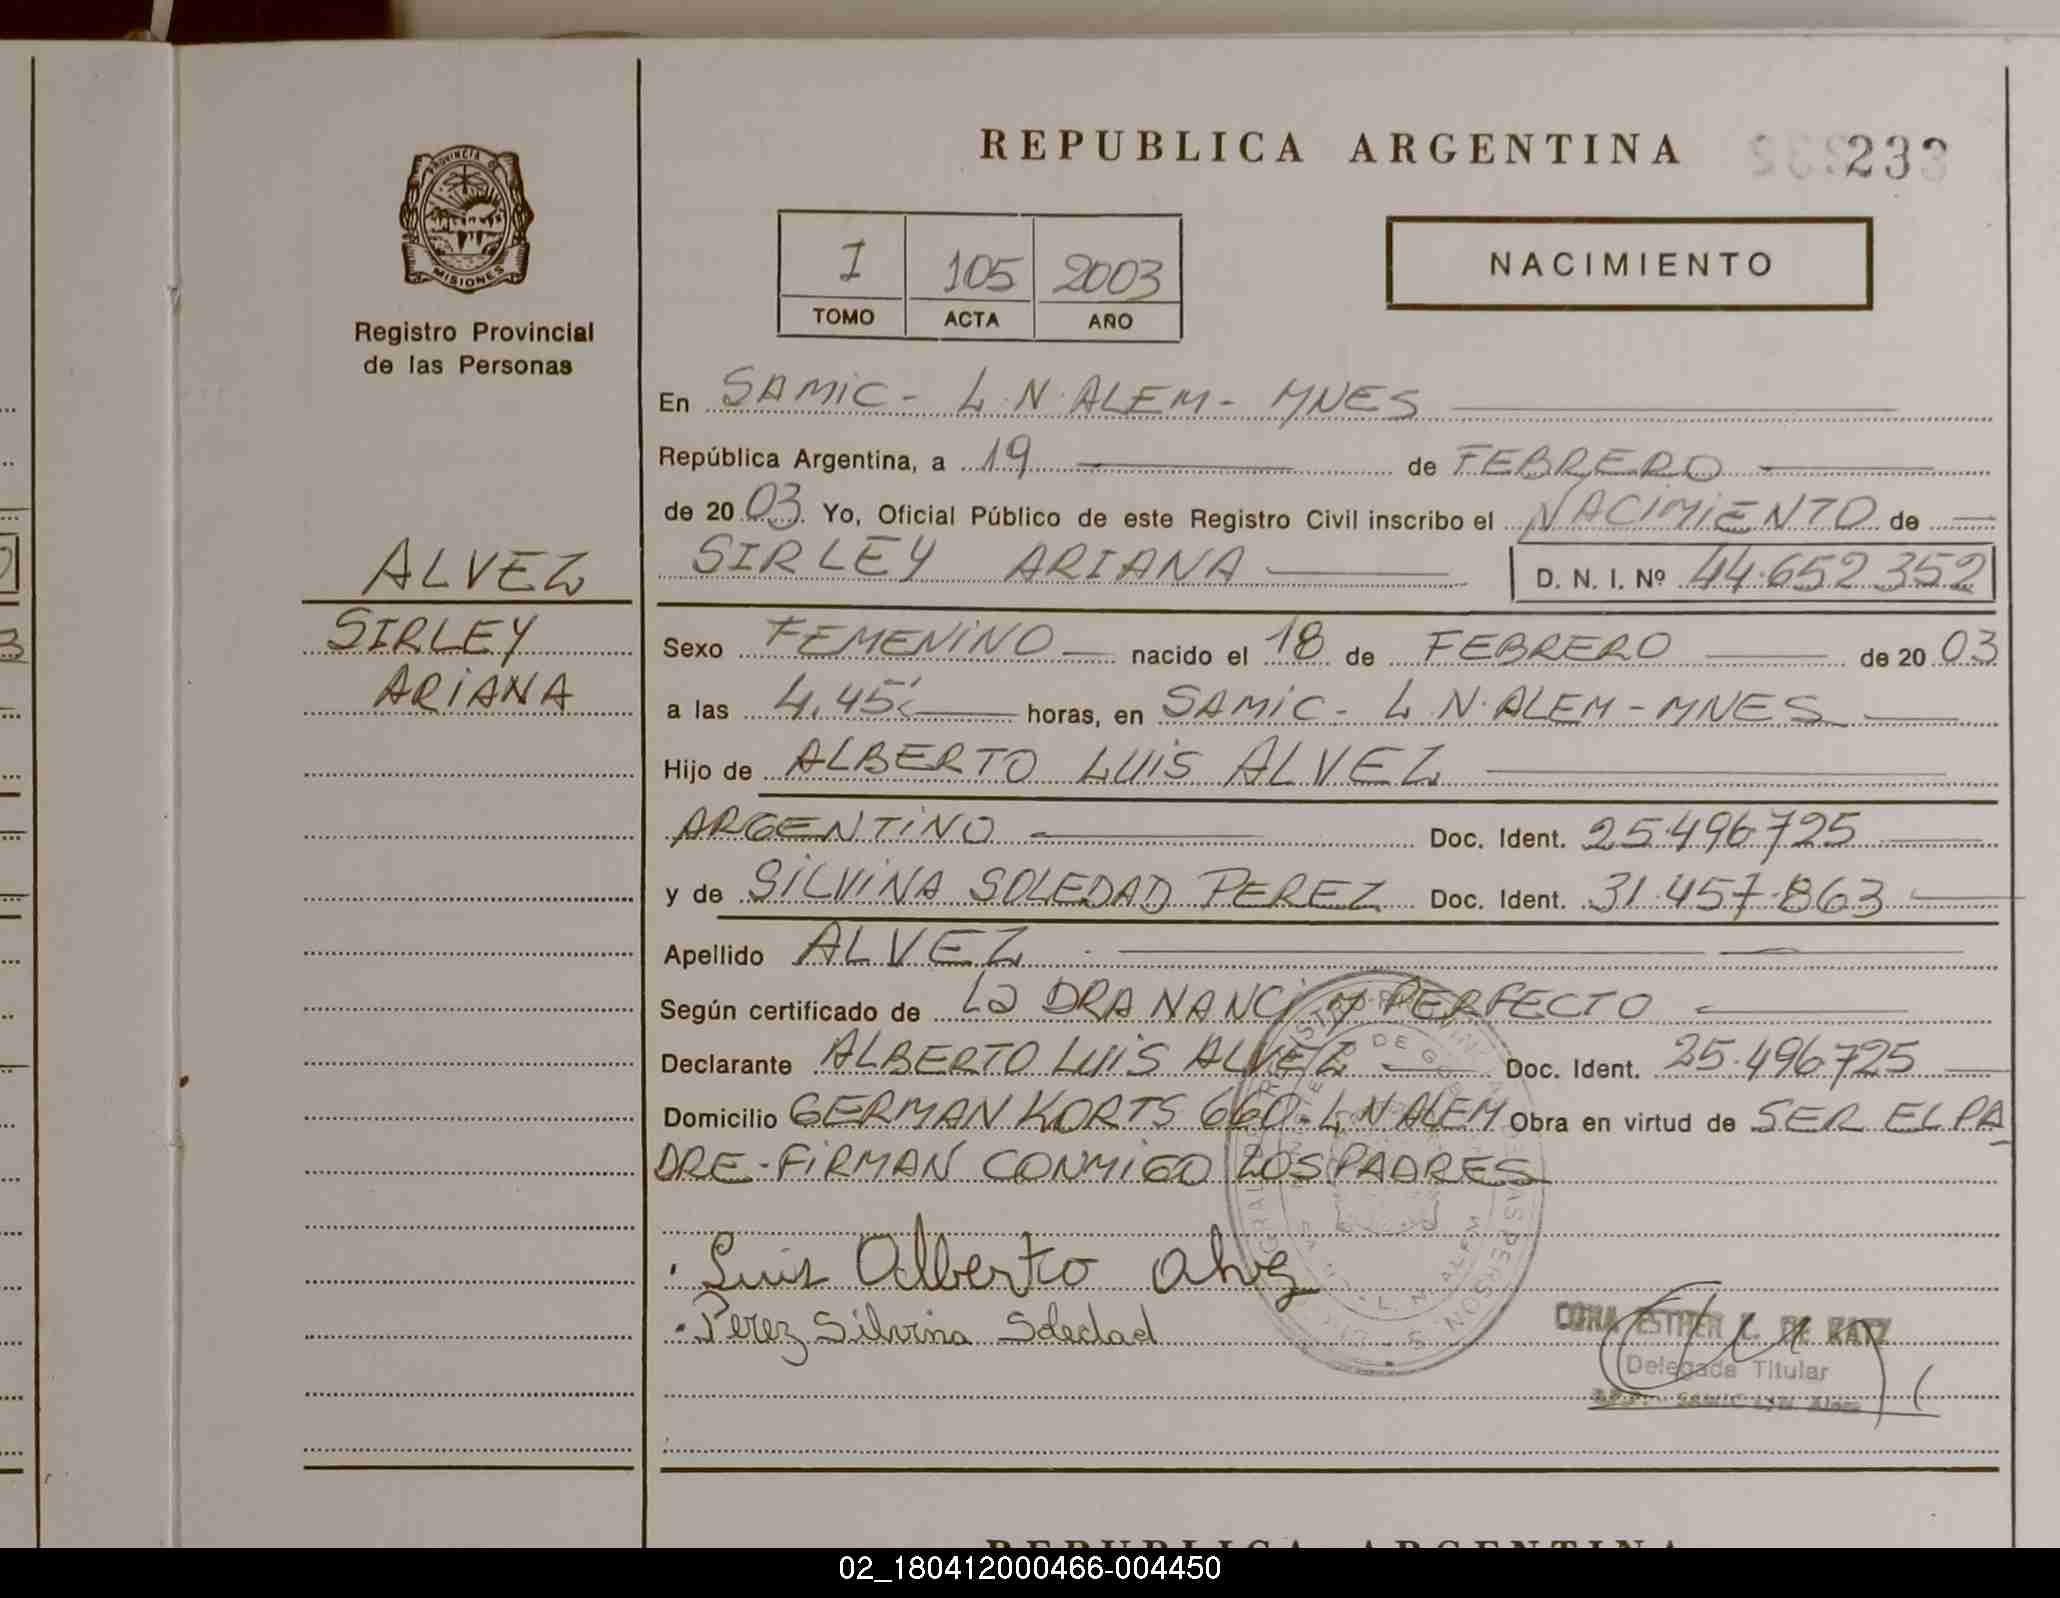 REPUBLICA ARGENTINA
233
PROVINCIA DE
MISIONES
Registro Provincial
de las Personas
I 105 2003
TOMO ACTA AÑO
NACIMIENTO
En SAMIC - L.N.ALEM - MNES
República Argentina, a 19 de FEBRERO
de 2003 Yo, Oficial Público de este Registro Civil inscribo el NACIMIENTO de
SIRLEY ARIANA D. N. I. Nº 44.652.352
ALVEZ
SIRLEY
ARIANA
Sexo FEMENINO nacido el 18 de FEBRERO de 2003
a las 4,45 horas, en SAMIC - L.N.ALEM - MNES
Hijo de ALBERTO LUIS ALVEZ
ARGENTINO Doc. Ident. 25.496725
y de SILVINA SOLEDAD PEREZ Doc. Ident. 31.457.863
Apellido ALVEZ
Según certificado de La DRA NANCI M PERFECTO
Declarante ALBERTO LUIS ALVEZ Doc. Ident. 25.496725
Domicilio GERMAN KORTS 660 - L N ALEM Obra en virtud de SER EL PA
DRE - FIRMAN CONMIGO LOS PADRES
Luis Alberto Alvez
Perez Silvina Soledad
ESTHER L. DE KATZ
Delegada Titular
SAMIC L.N. Alem
REPUBLICA ARGENTINA
02_180412000466-004450